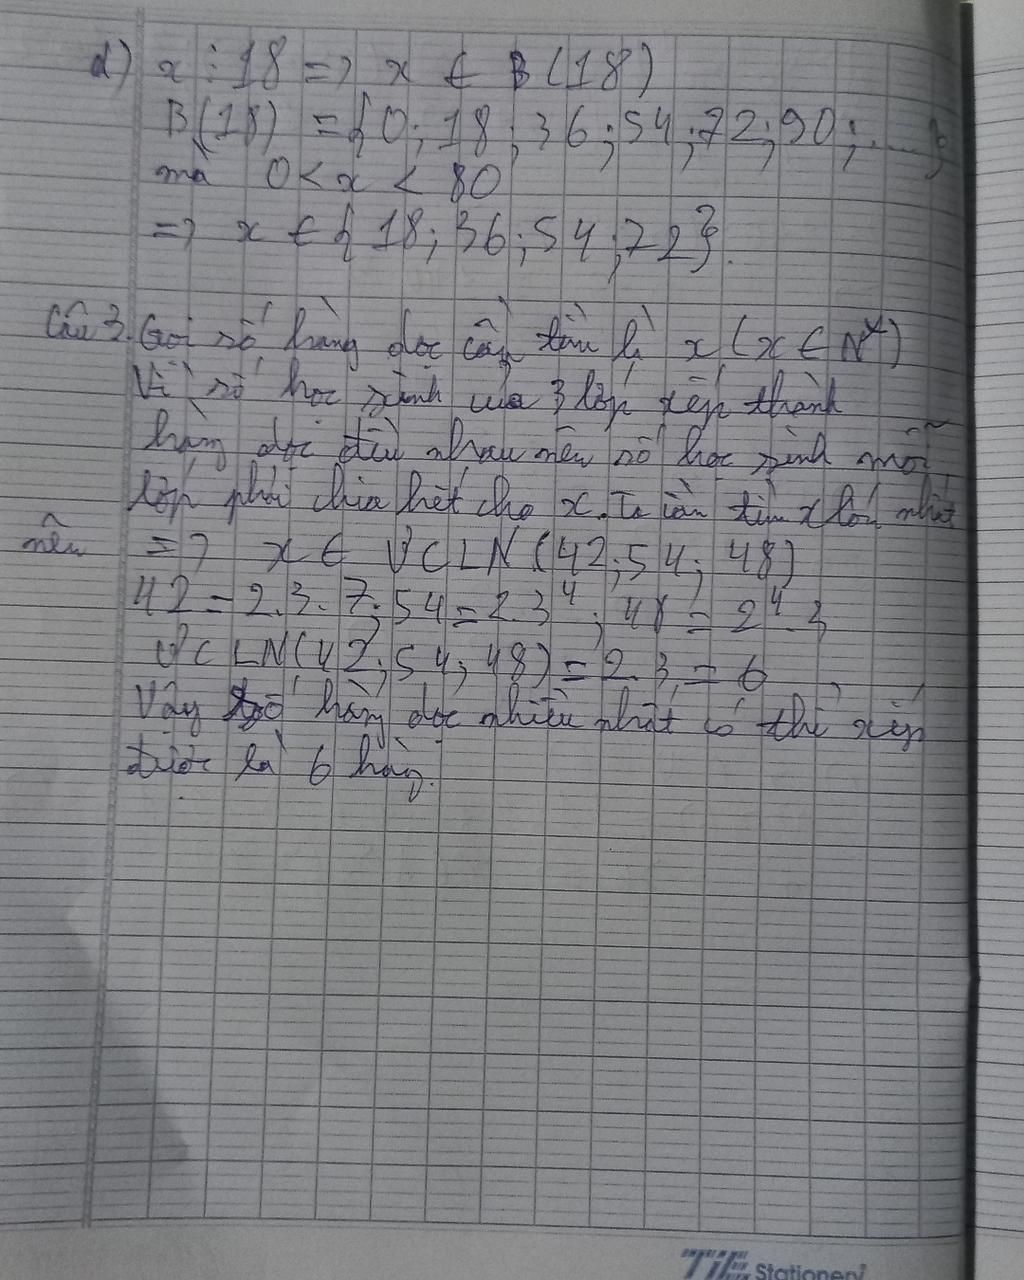 d) x ⋮ 18 => x ∈ B(18)
B(18) = {0; 18; 36; 54; 72; 90; ...}
mà 0 < x < 80
=> x ∈ {18; 36; 54; 72}.
Câu 3. Gọi số hàng dọc cần tìm là x (x ∈ N*)
Vì số học sinh của 3 lớp xếp thành
hàng dọc đều nhau nên số học sinh mỗi
lớp phải chia hết cho x. Ta cần tìm x lớn nhất
nên => x ∈ ƯCLN(42; 54; 48)
42 = 2.3.7; 54 = 2.3⁴; 48 = 2⁴.3
ƯCLN(42; 54; 48) = 2.3 = 6
Vậy số hàng dọc nhiều nhất có thể xếp
được là 6 hàng.
TiE Stationery